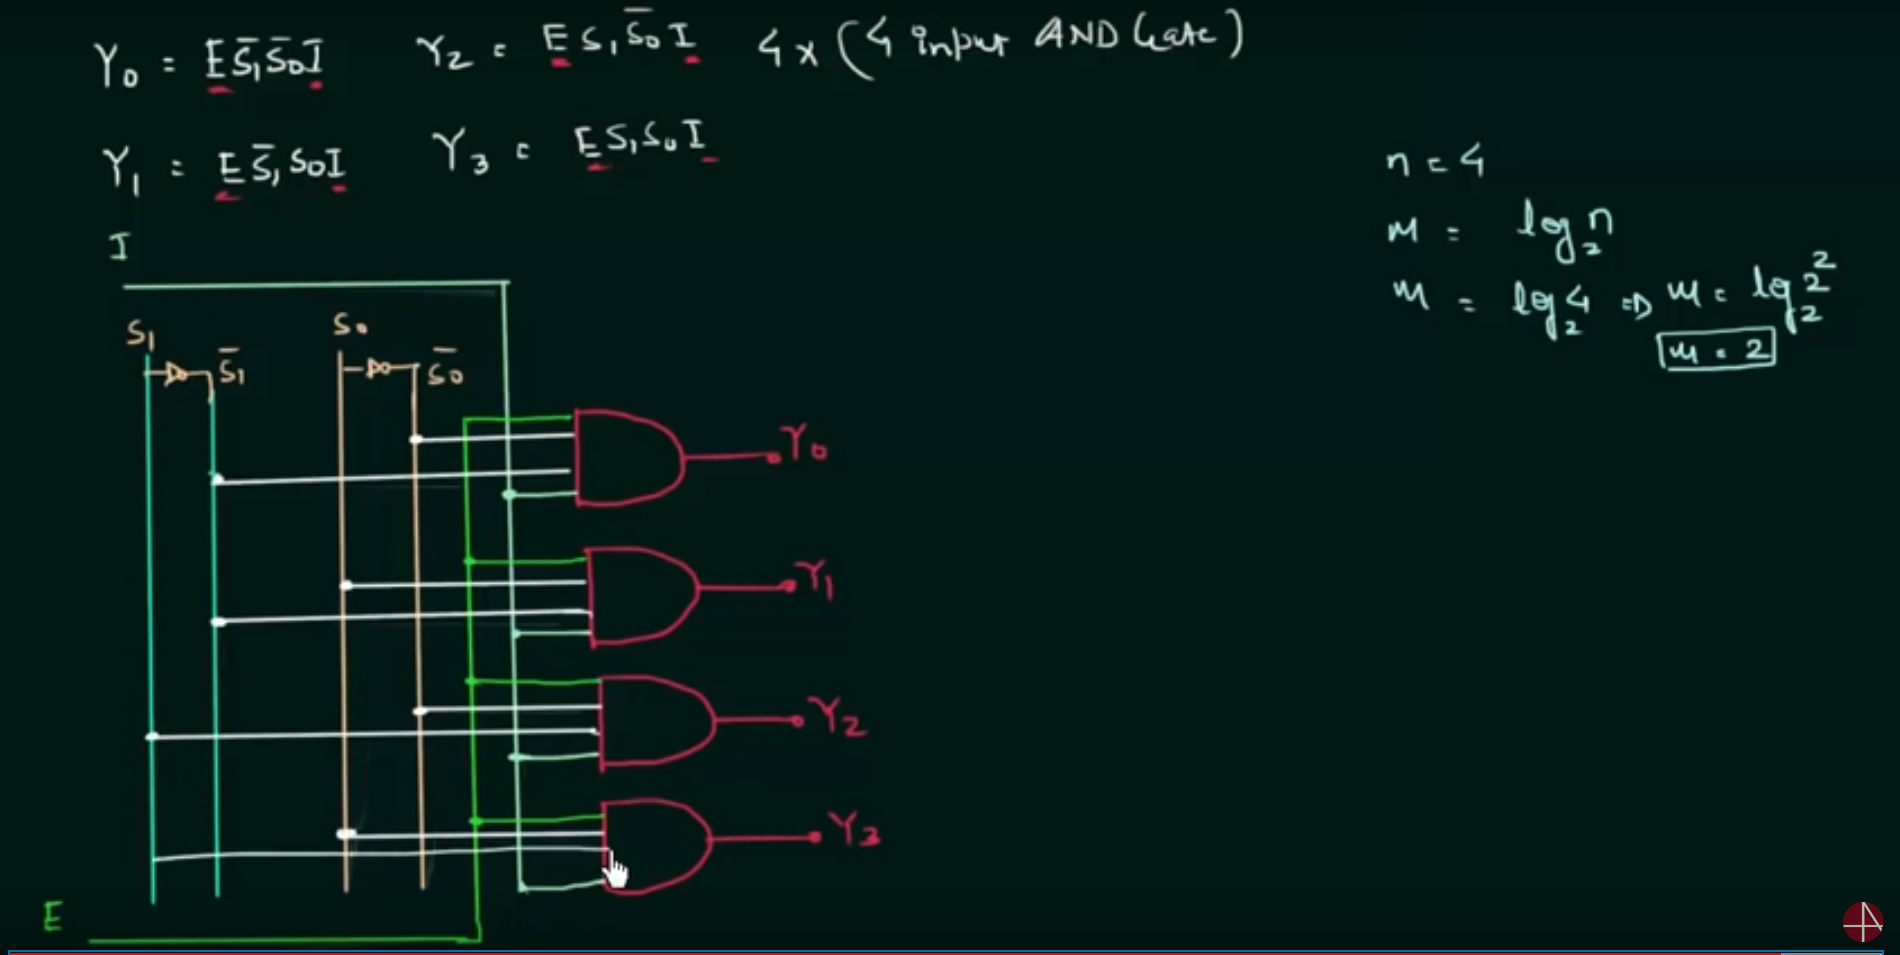 Y₀ = E S̅₁ S̅₀ I   Y₂ = E S₁ S̅₀ I   4 x (4 input AND Gate)
Y₁ = E S̅₁ S₀ I   Y₃ = E S₁ S₀ I
n = 4
m = log₂ n
m = log₂ 4 ⇒ m = log₂ 2²
m = 2
I
S₁   S̅₁   S₀   S̅₀
Y₀
Y₁
Y₂
Y₃
E